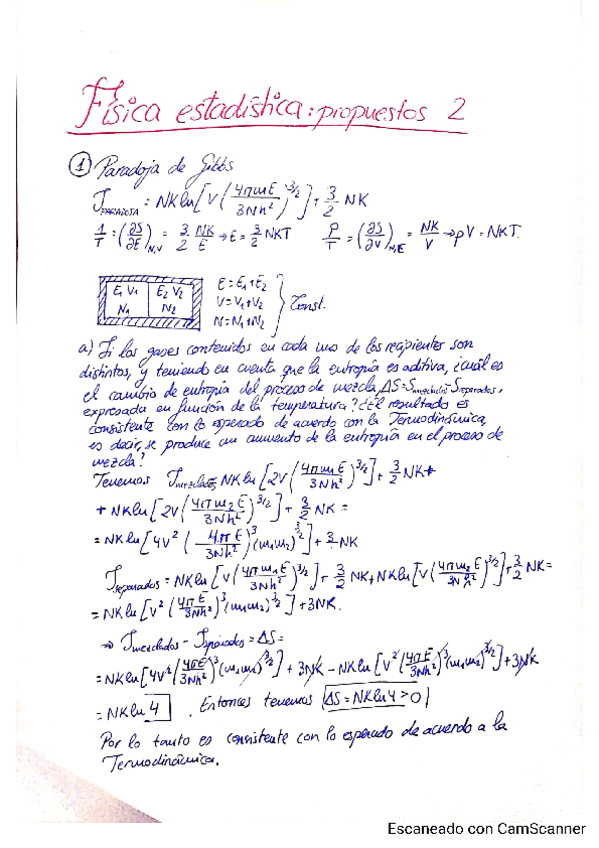 Física estadística: propuestos 2
① Paradoja de Gibbs
S_PARADOJA = NK ln[V(4πmE/3Nh²)^3/2] + 3/2 NK
1/T = (∂S/∂E)_N,V = 3/2 NK/E → E = 3/2 NKT   P/T = (∂S/∂V)_N,E = NK/V → pV = NKT.
E₁ V₁ E₂ V₂ E = E₁+E₂
V = V₁+V₂ Const.
N₁ N₂ N = N₁+N₂
a) Si los gases contenidos en cada uno de los recipientes son
distintos, y teniendo en cuenta que la entropía es aditiva, ¿cuál es
el cambio de entropía del proceso de mezcla ΔS=S_mezclados-S_separados,
expresada en función de la temperatura? ¿El resultado es
consistente con lo esperado de acuerdo con la Termodinámica,
es decir, se produce un aumento de la entropía en el proceso de
mezcla?
Tenemos S_mezclados = NK ln[2V(4πm₁E/3Nh²)^3/2] + 3/2 NK +
+ NK ln[2V(4πm₂E/3Nh²)^3/2] + 3/2 NK =
= NK ln[4V²(4πE/3Nh²)³(m₁m₂)^3/2] + 3 NK
S_separados = NK ln[V(4πm₁E/3Nh²)^3/2] + 3/2 NK + NK ln[V(4πm₂E/3Nh²)^3/2] + 3/2 NK =
= NK ln[V²(4πE/3Nh²)³(m₁m₂)^3/2] + 3NK.
→ S_mezclados - S_separados = ΔS =
= NK ln[4V²(4πE/3Nh²)³(m₁m₂)^3/2] + 3NK - NK ln[V²(4πE/3Nh²)³(m₁m₂)^3/2] + 3NK
= NK ln 4. Entonces tenemos ΔS = NK ln 4 > 0
Por lo tanto es consistente con lo esperado de acuerdo a la
Termodinámica.
Escaneado con CamScanner